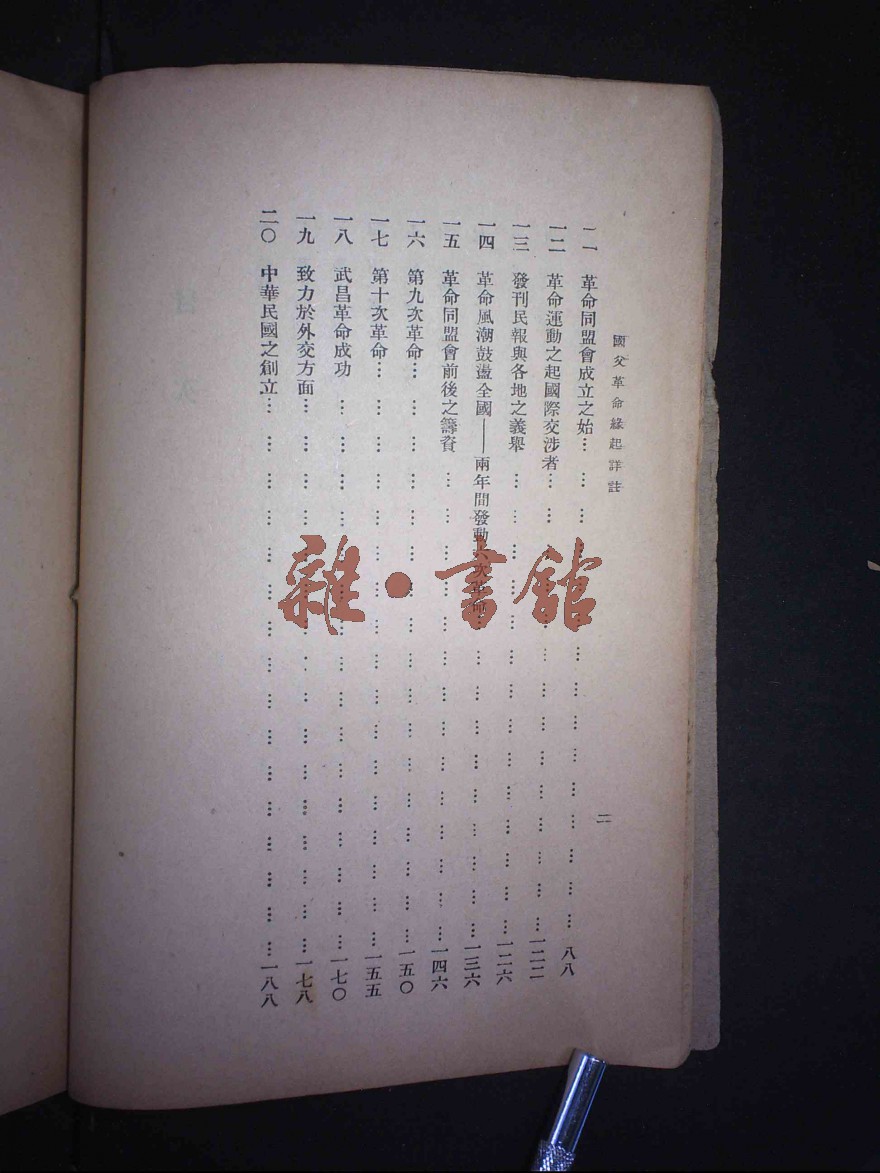 國父革命緣起詳註 二
一一 革命同盟會成立之始……八八
一二 革命運動之起國際交涉者……一二二
一三 發刊民報與各地之義舉……一二六
一四 革命風潮鼓盪全國——兩年間發動六次革命……一三六
一五 革命同盟會前後之籌資……一四六
一六 第九次革命……一五〇
一七 第十次革命……一五五
一八 武昌革命成功……一七〇
一九 致力於外交方面……一七八
二〇 中華民國之創立……一八八
雜·書館